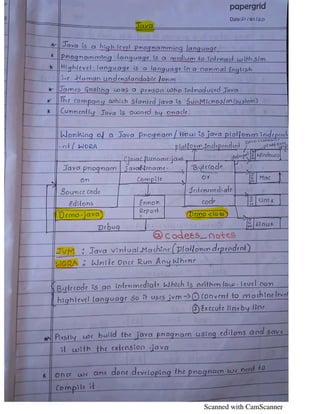 papergrid
Date: 21/01/20
Java
* Java is a high level programming language.
* Programming language is a medium to interact with sim
* High level language is a language in a normal English
i.e Human understandable form
* James Gosling was a person who Introduced Java
* The company which started java is SunMicrosystem(system)
* Currently Java is owned by oracle
Working of a Java program / How is java platform independ-
-nt / WORA
platform Independent
Javac filename.java
Java program
or
Source code
Editors
Javafilename.
Compile
Bytecode
or
Intermediate
code
Windows
Mac
Unix
Linux
Error
Report
Demo.java
Demo.class
Debug
@codees_notes
JVM : Java Virtual Machine (Platform dependent)
WORA : Write Once Run Any Where
Bytecode is an intermediate which is neither low level nor
high level language so it uses jvm → ① Convert to machine level
② Execute line by line
* Firstly we build the java program using editors and save
it with the extension .java
* Once we are done developing the program we need to
compile it
Scanned with CamScanner